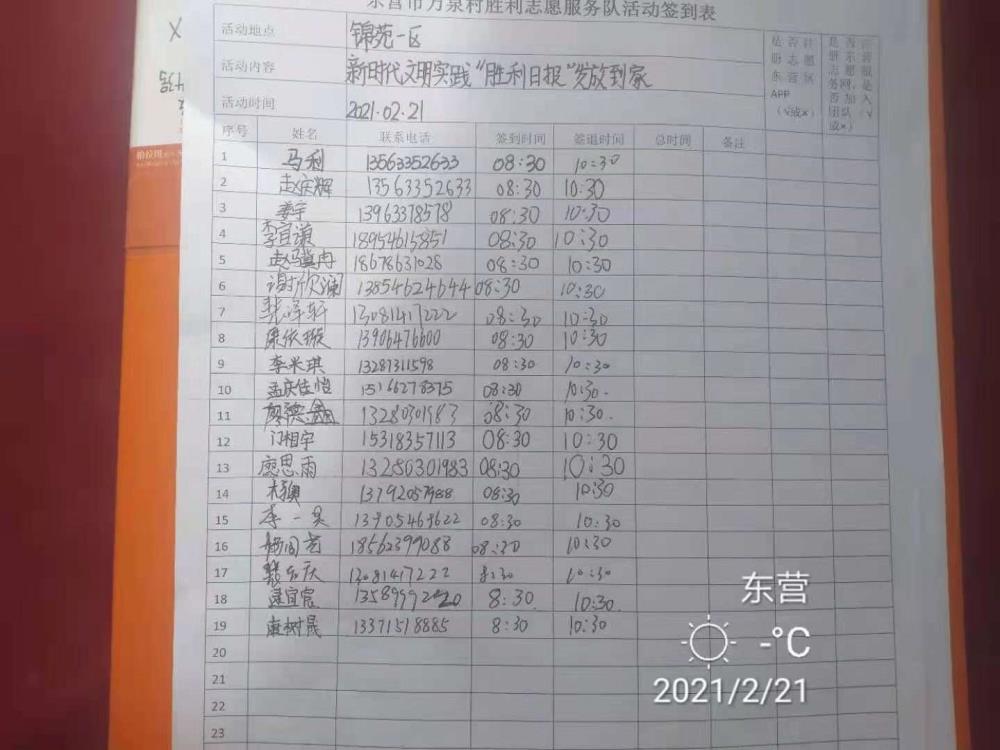 东营市万泉村胜利志愿服务队活动签到表
活动地点 锦苑一区
活动内容 新时代文明实践“胜利日报”发放到家
活动时间 2021.02.21
是否注册志愿东营区APP(√或×)
是否在东营志愿服务网,是否加入团队(√或×)
序号 姓名 联系电话 签到时间 签退时间 总时间 备注
1 马利 13563352633 08:30 10:30
2 赵庆辉 13563352633 08:30 10:30
3 娄宇 13963378578 08:30 10:30
4 李宜谦 18954615851 08:30 10:30
5 赵骥冉 18678631028 08:30 10:30
6 谢欣澜 13854624644 08:30 10:30
7 张泽轩 13081417222 08:30 10:30
8 康依璇 13906476600 08:30 10:30
9 李米琪 13287311598 08:30 10:30
10 孟庆佳怡 15166278375 08:30 10:30.
11 廖德鑫 13280301983 08:30 10:30.
12 门相宇 15318357113 08:30 10:30
13 廖思雨 13280301983 08:30 10:30
14 13792057988 08:30 10:30
15 李一昊 13905469622 08:30 10:30
16 18562399088 08:30 10:30
17 13081417222 8:30 10:30
18 8:30. 10:30.
19 唐树晟 13371518885 8:30 10:30
20
21
22
23
东营
-°C
2021/2/21